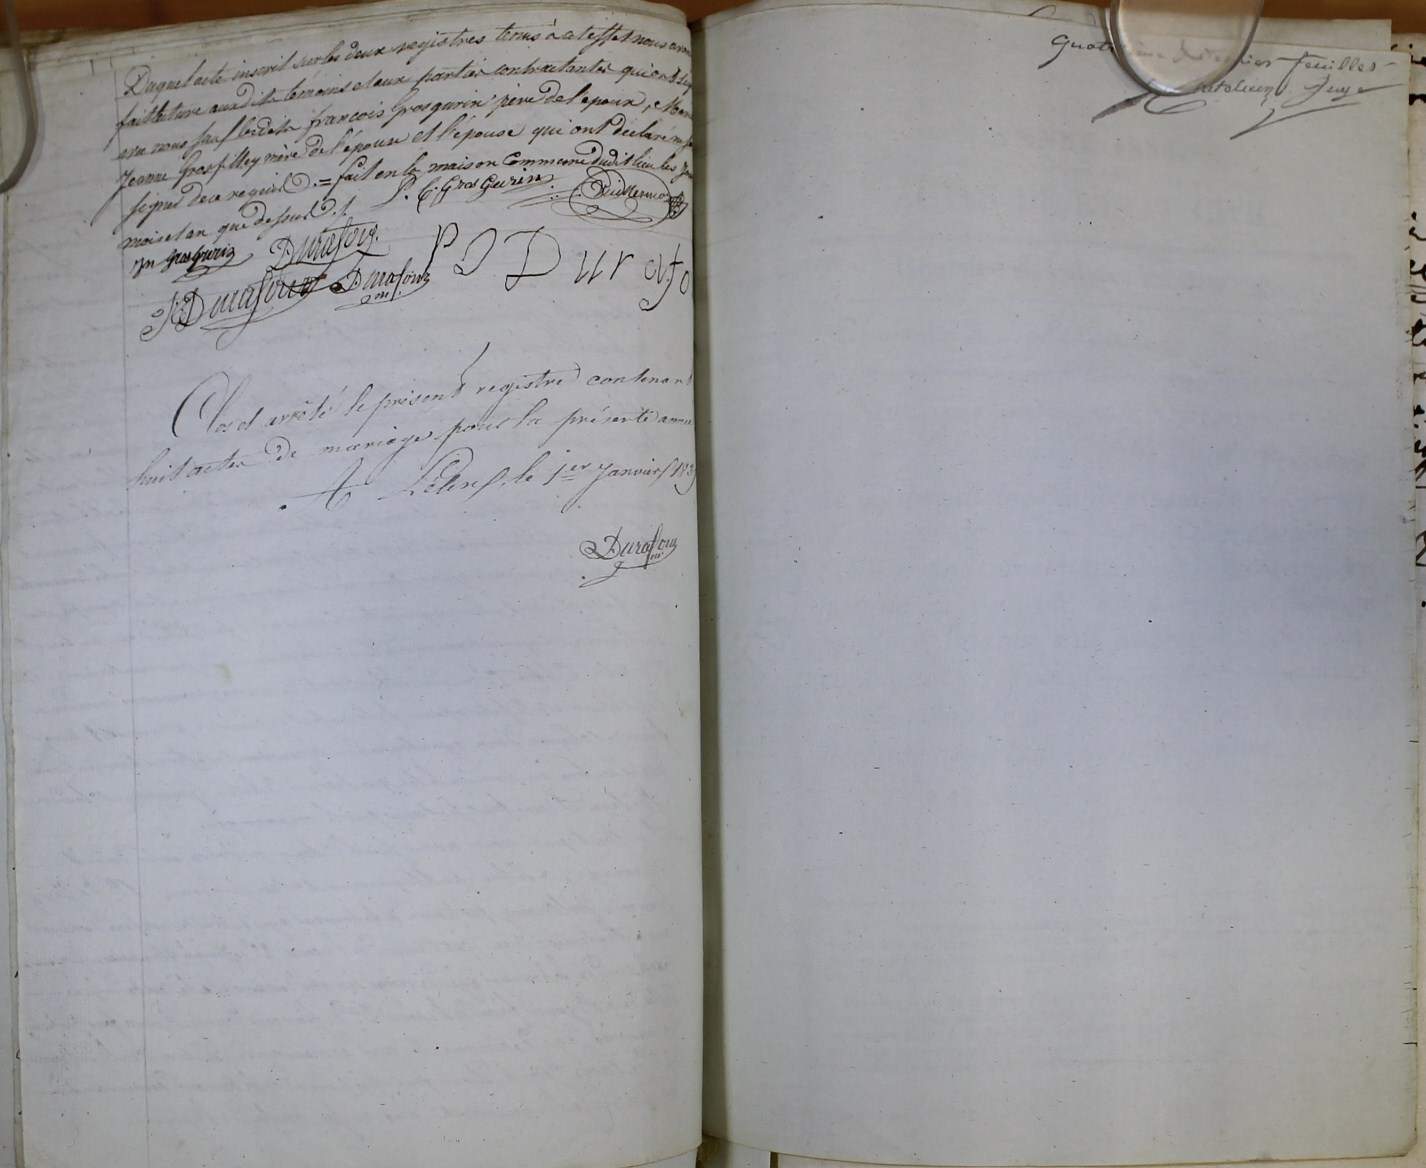 Duquel acte inscrit sur les deux registres tenus à cet effet nous avons
fait lecture auxdits témoins et aux parties contractantes qui ont sig
avec nous sauf lesdits françois Grosgurin père de l'époux, Marie
Jeanne Grosfilley mère de l'époux et l'épouse qui ont déclaré ne
de ce requis. = fait en la maison Commune dudit lieu les jour
mois et an que dessus./.
P. C. Gros Gurin
Vuillermoz
Jn GrosGurin Durafour
P J Durafo
J Durafour Durafour
m.
Clos et arrêté le présent registre contenant
huit actes de mariage pour la présente année
A Lélex, le 1er Janvier 183
Durafour
m.
dernier feuillet
Juge